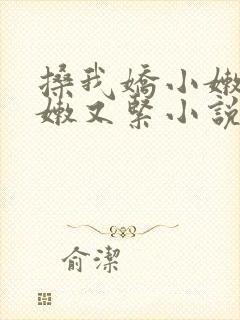 搡我嬌小嫩
嫩又緊小說
俞潔